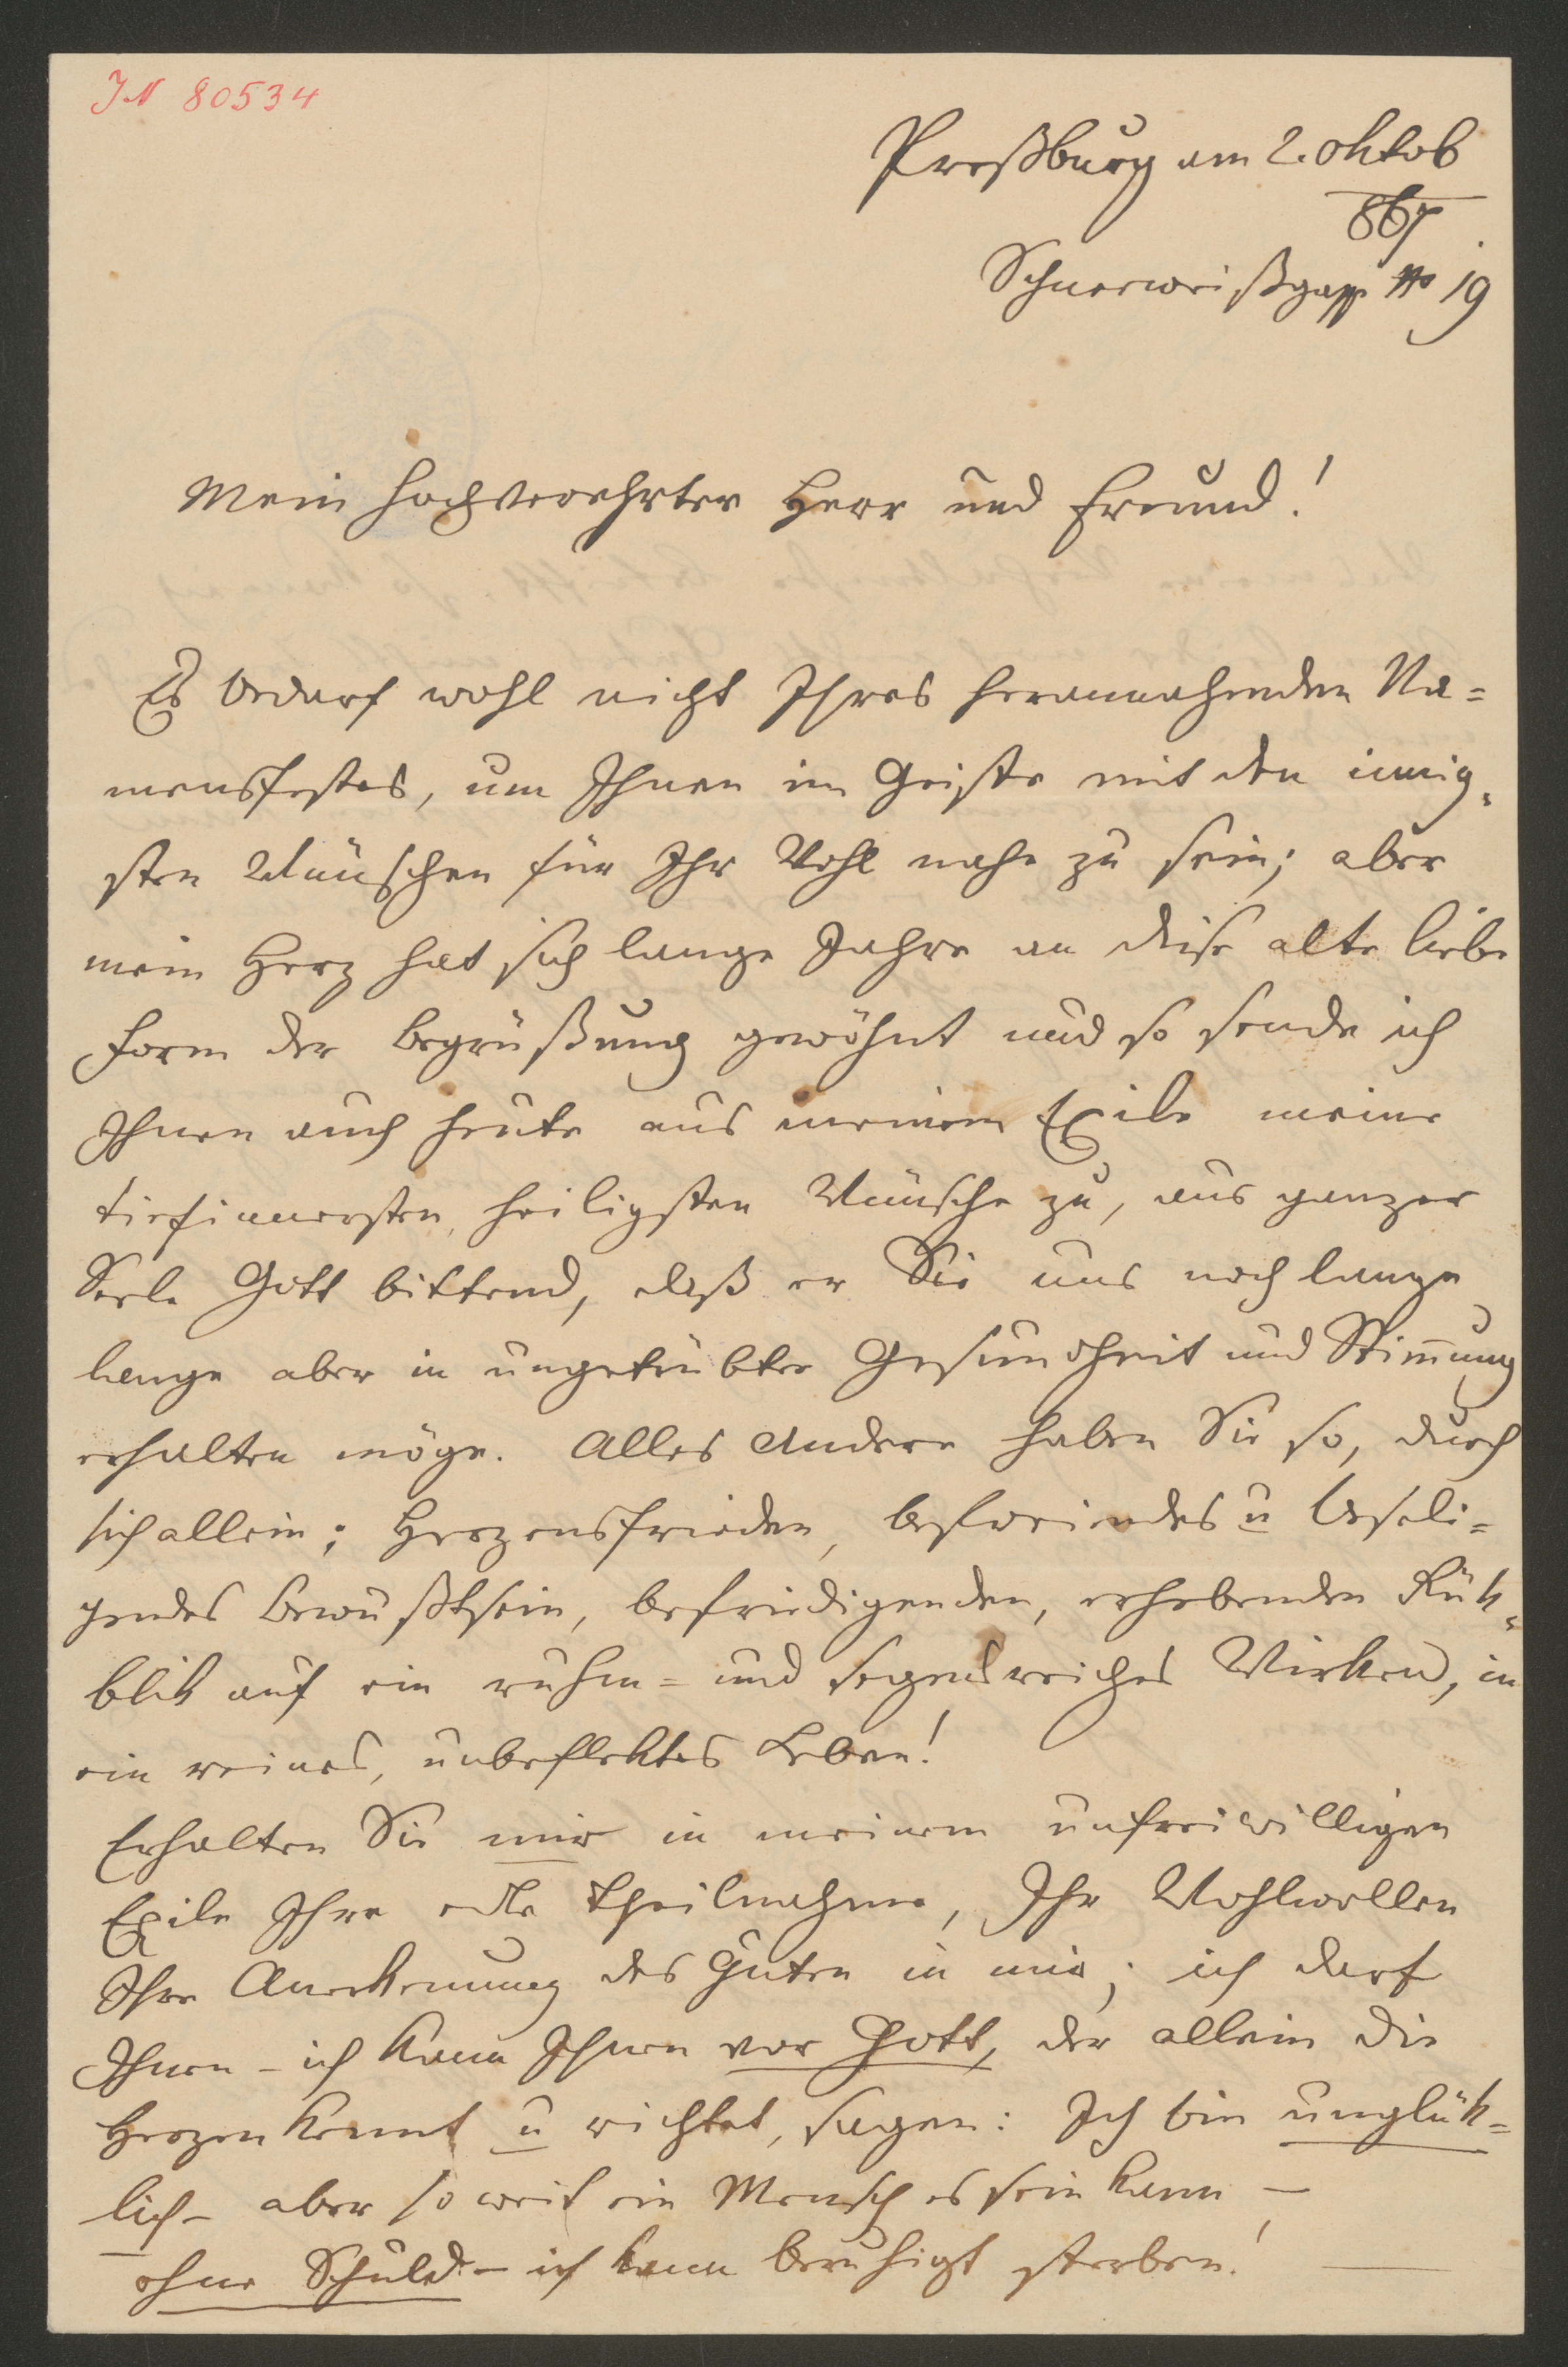 JN 80534
Preßburg am 2. Oktob
867
Schneeweißgasse No 19
Mein hochverehrter Herr und Freund!
Es bedarf wohl nicht Ihres herannahenden Na=
mensfestes, um Ihnen im Geiste mit den innig=
sten Wünschen für Ihr Wohl nahe zu sein; aber
mein Herz hat sich lange Jahre an diese alte liebe
Form der Begrüßung gewöhnt und so sende ich
Ihnen auch heute aus meinem Exile meine
tiefinnersten, heiligsten Wünsche zu, aus ganzer
Seele Gott bittend, daß er Sie uns noch lange
lange aber in ungetrübter Gesundheit und Stim̅ung
erhalten möge. Alles Andere haben Sie so, durch
sich allein; Herzensfrieden, befreiendes u beseli=
gendes Bewußtsein, befriedigenden, erhebenden Rük=
blik auf ein ruhm= und segensreiches Wirken, in
ein reines, unbeflektes Leben!
Erhalten Sie mir in meinem unfreiwilligen
Exile Ihre edle Theilnahme, Ihr Wohlwollen
Ihre Anerkennung des Guten in mir; ich darf
Ihnen – ich kann Ihnen vor Gott, der allein die
Herzen kennt u richtet, sagen: Ich bin unglük=
lich – aber so weit ein Mensch es sein kann –
ohne Schuld – ich kann beruhigt sterben! –